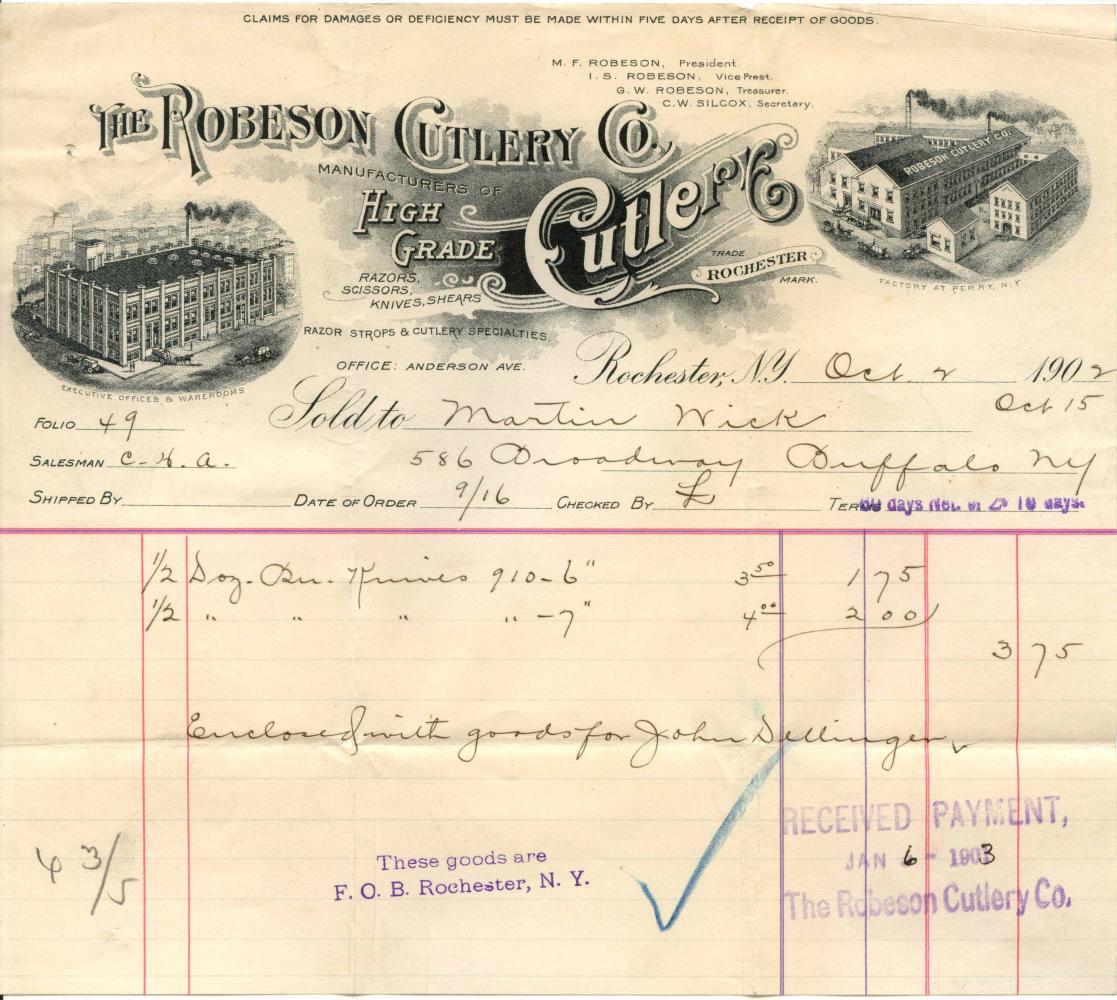 CLAIMS FOR DAMAGES OR DEFICIENCY MUST BE MADE WITHIN FIVE DAYS AFTER RECEIPT OF GOODS.
M. F. ROBESON, President.
I. S. ROBESON, Vice Prest.
G. W. ROBESON, Treasurer.
C. W. SILCOX, Secretary.
THE ROBESON CUTLERY CO.
MANUFACTURERS OF
HIGH GRADE
Cutlery
RAZORS,
SCISSORS,
KNIVES, SHEARS
RAZOR STROPS & CUTLERY SPECIALTIES
TRADE
ROCHESTER
MARK.
ROBESON CUTLERY CO.
FACTORY AT PERRY, N.Y
EXECUTIVE OFFICES & WAREROOMS
OFFICE: ANDERSON AVE.
Rochester, N.Y. Oct 2 1902
Oct 15
FOLIO 49
Sold to Martin Wick
SALESMAN C. H. A.
586 Broadway Buffalo NY
SHIPPED BY
DATE OF ORDER 9/16
CHECKED BY
TERMS 60 days Net. or 2% 10 days.
1/2 Doz. Bu. Knives 910-6" 3 50 1 75
1/2 " " " " -7" 4 00 2 00
3 75
Enclosed with goods for John Dellinger
RECEIVED PAYMENT,
JAN 6 - 1903
The Robeson Cutlery Co.
These goods are
F. O. B. Rochester, N. Y.
3/5